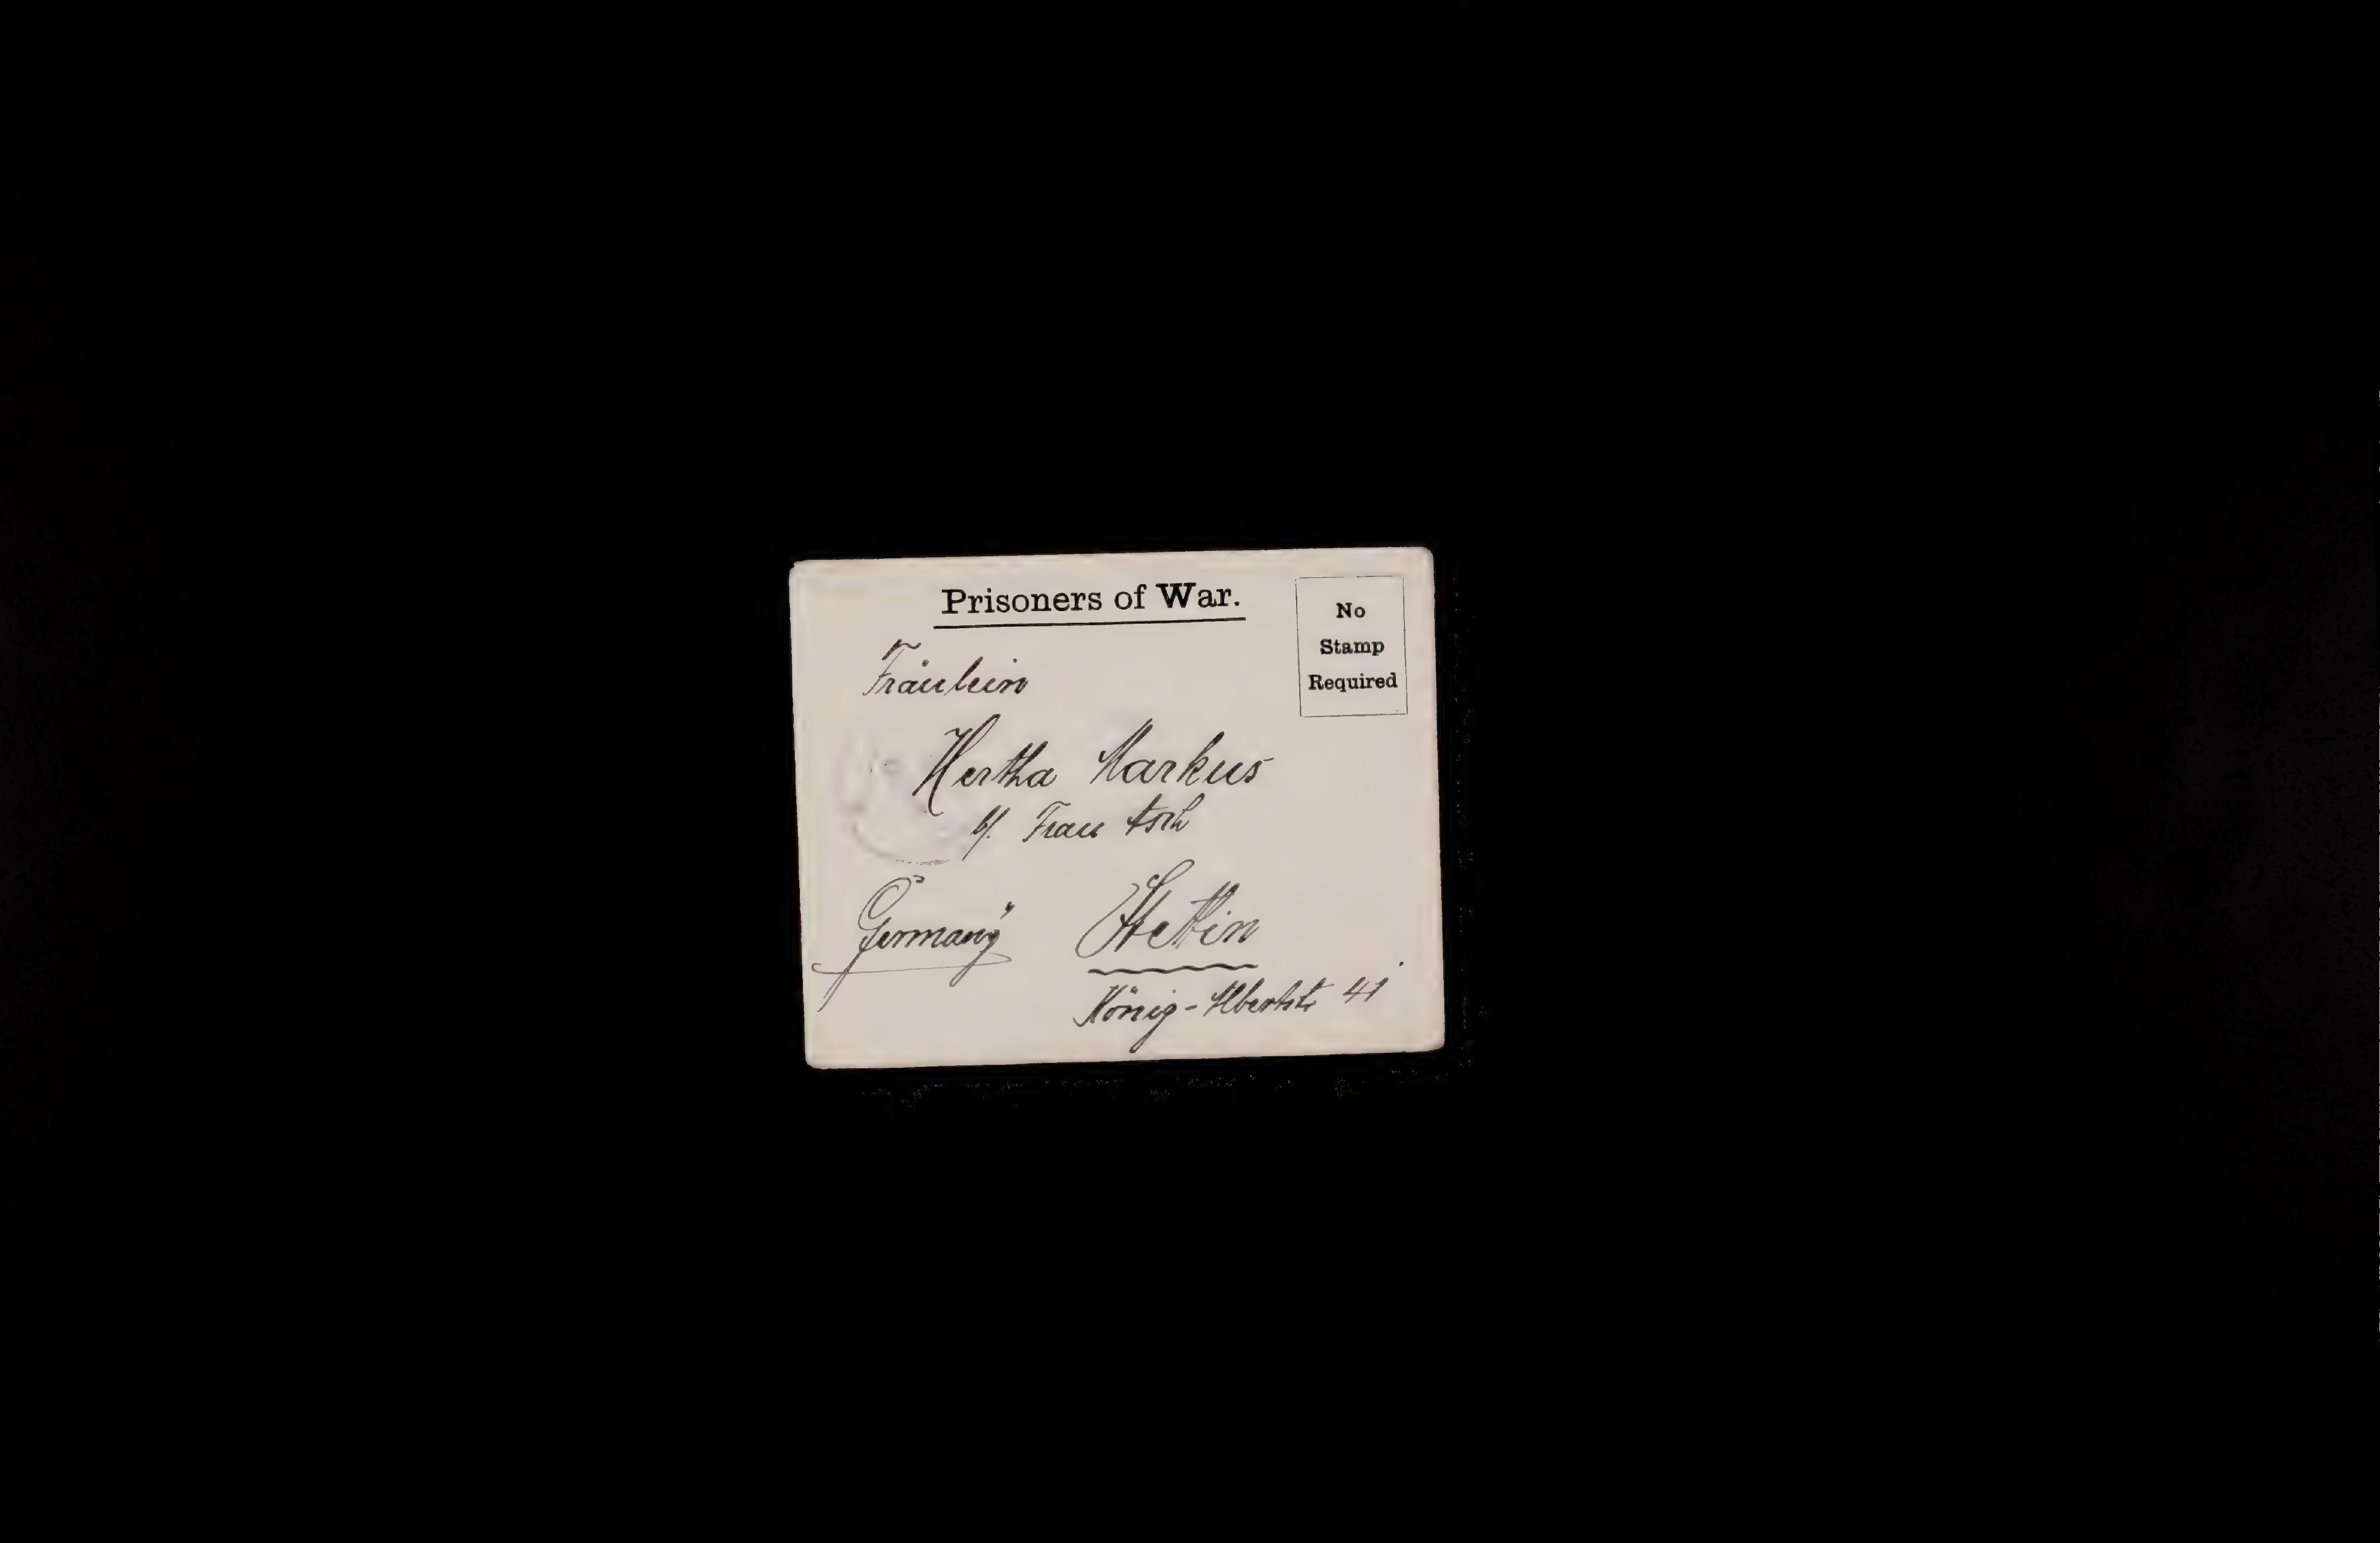 Prisoners of War.
No
Stamp
Required
Fräulein
Hertha Markus
b/. Frau Asch
Germany Stettin
König-Albertstr. 41